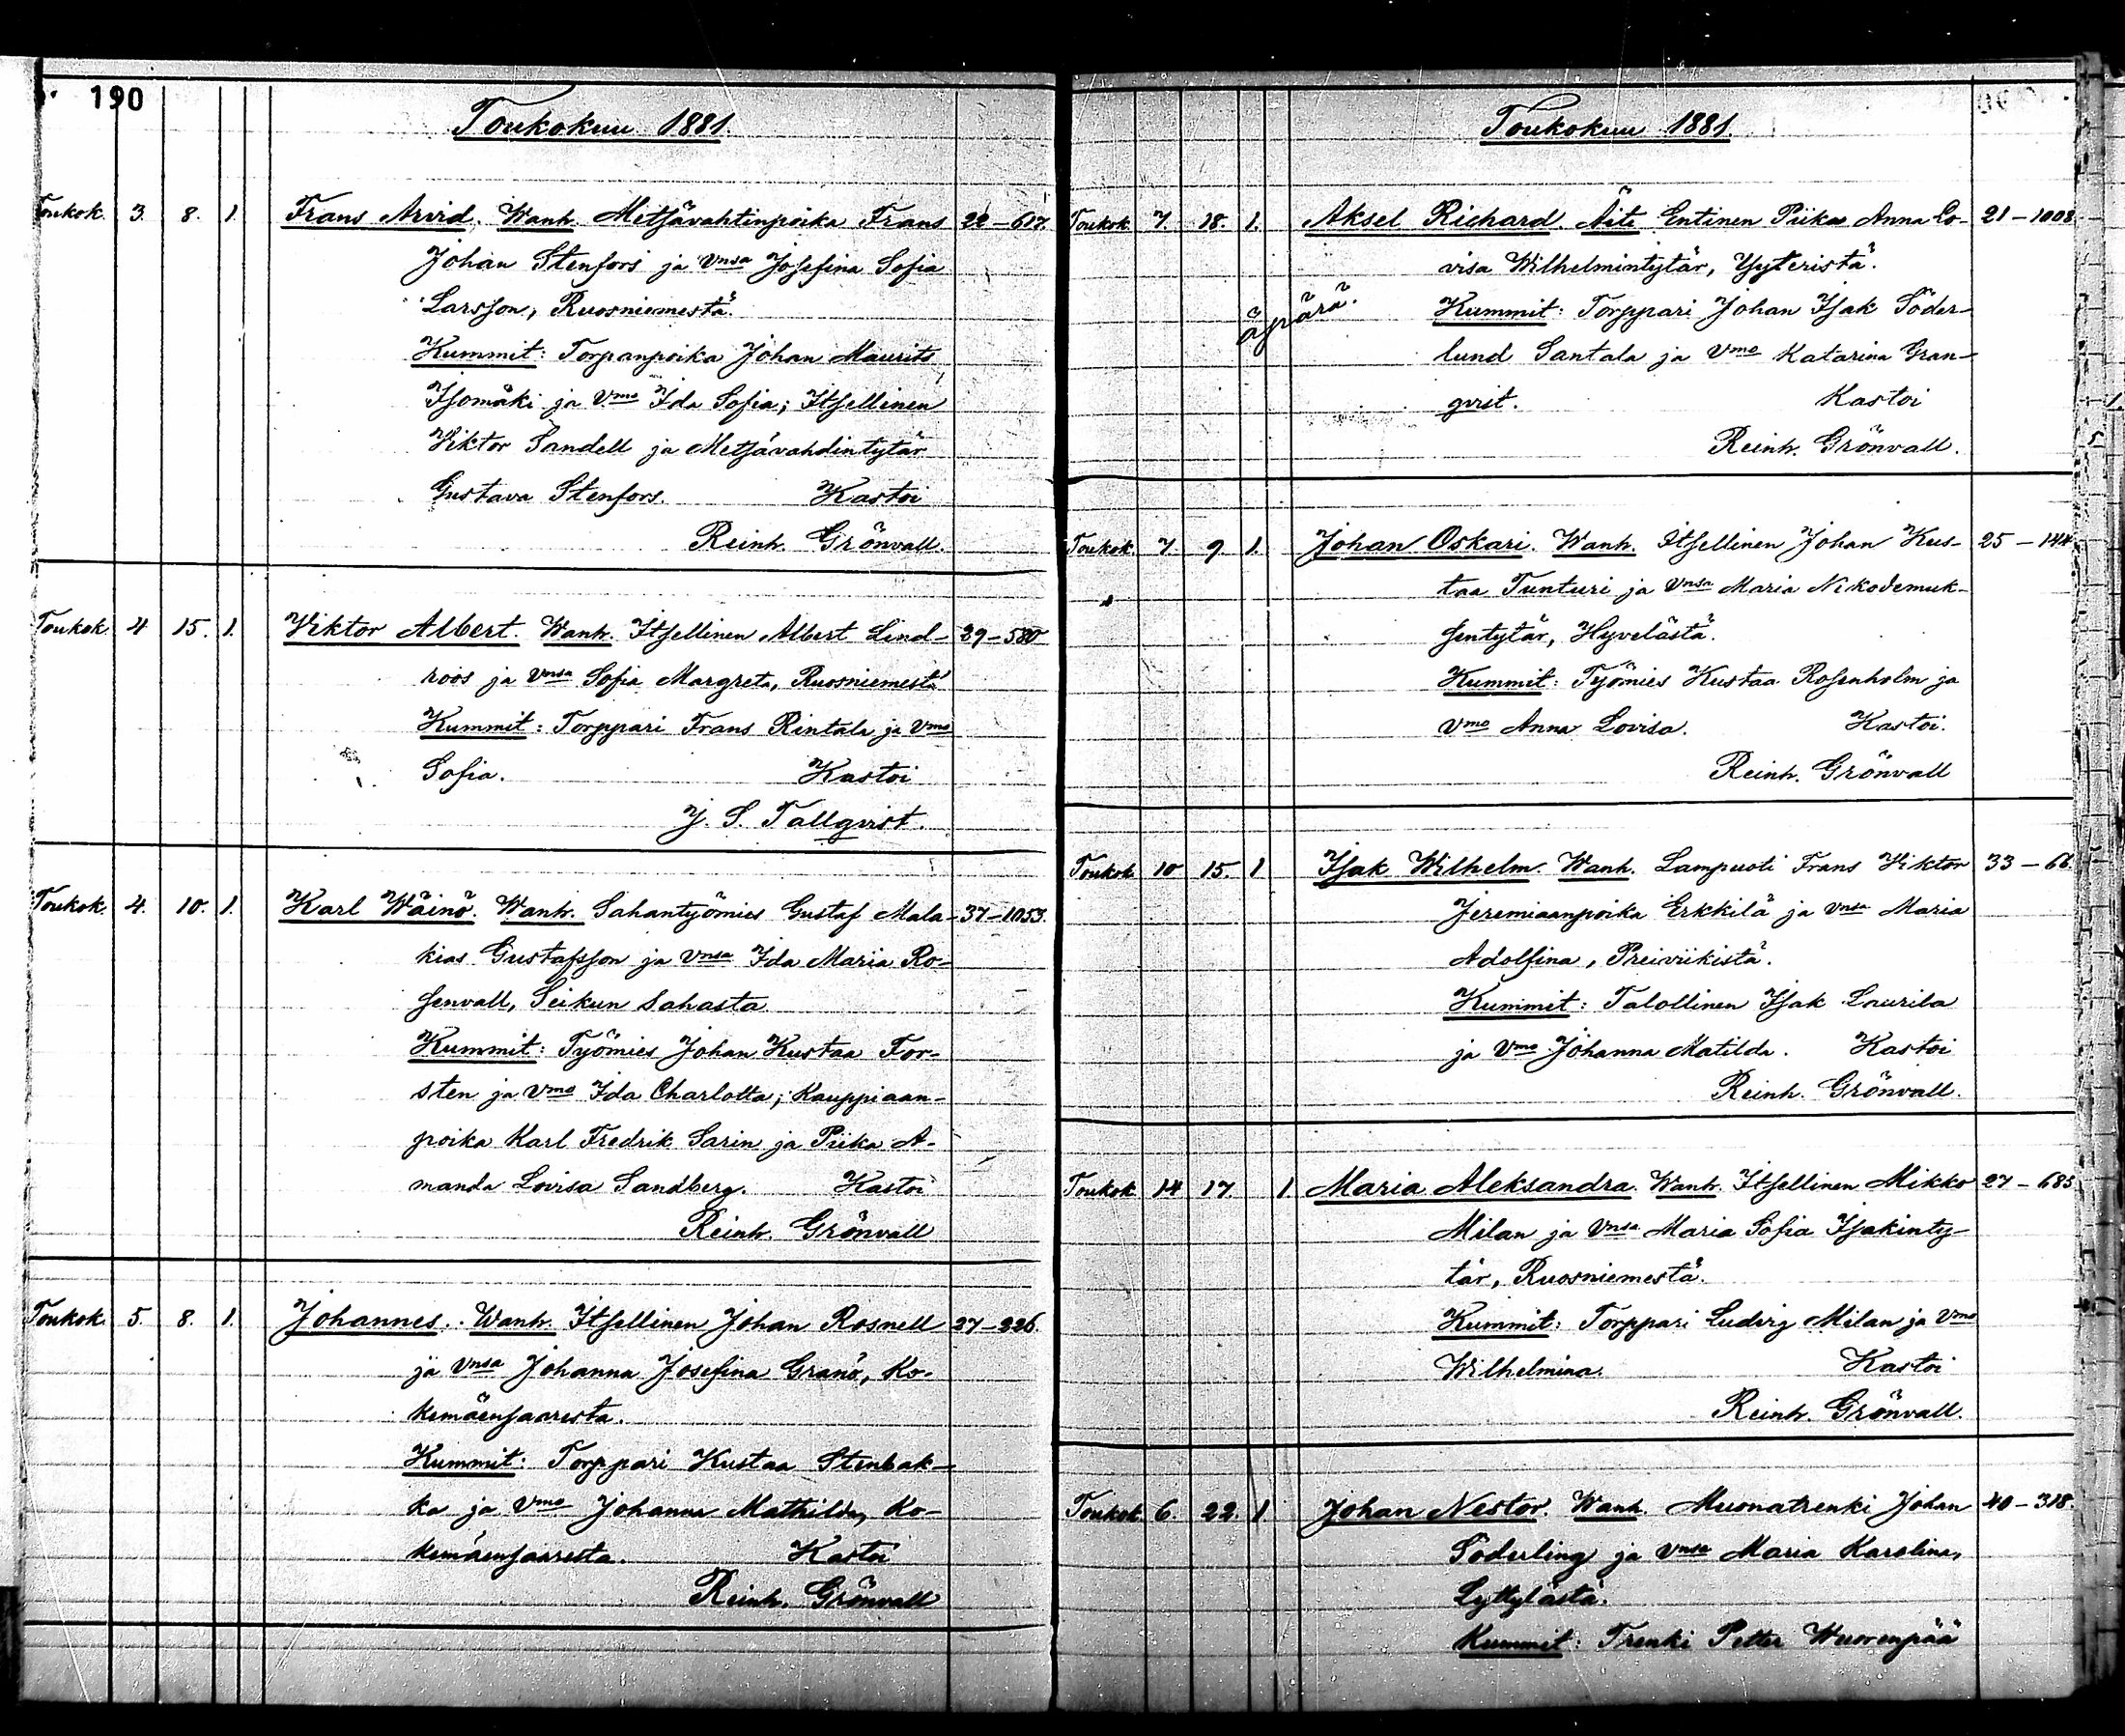 190
Toukokuu 1881.
Toukok. 3. 8. 1. Frans Arvid. Wanh. Metsävahtinpoika Frans 22-617.
Johan Stenfors ja Vnsa Josefina Sofia
Larsson, Ruosniemestä.
Kummit: Torpanpoika Johan Maurits
Isomäki ja Vmo Ida Sofia; Itsellinen
Viktor Sandell ja Metsävahdintytär
Gustava Stenfors. Kastoi
Reinh. Grönvall.
Toukok. 4 15. 1. Viktor Albert. Wanh. Itsellinen Albert Lind- 29-580
roos ja Vnsa Sofia Margreta, Ruosniemestä
Kummit: Torppari Frans Rintala ja Vmo
Sofia. Kastoi
J. S. Tallqvist.
Toukok. 4. 10. 1. Karl Wäinö. Wanh. Sahantyömies Gustaf Mala- 37-1053.
kias Gustafsson ja Vnsa Ida Maria Ro-
senvall, Seikun Sahasta
Kummit: Työmies Johan Kustaa For-
sten ja Vmo Ida Charlotta; Kauppiaan-
poika Karl Fredrik Sarin ja Piika A-
manda Lovisa Sandberg. Kastoi
Reinh. Grönvall
Toukok. 5. 8. 1. Johannes. Wanh. Itsellinen Johan Rosnell 27-226.
ja Vnsa Johanna Josefina Granö, Ko-
kemäensaaresta.
Kummit: Torppari Kustaa Stenbak-
ka ja Vmo Johanna Mathilda, Ko-
kemäensaaresta. Kastoi
Reinh. Grönvall
Toukokuu 1881.
Toukok. 7. 18. 1. Aksel Richard. Äiti Entinen Piika Anna Lo- 21-1008
visa Wilhelmintytär, Yyteristä.
äpärä.
Kummit: Torppari Johan Isak Söder-
lund Santala ja Vmo Katarina Gran-
qvist. Kastoi
Reinh. Grönvall.
Toukok. 7. 9 1. Johan Oskari. Wanh. Itsellinen Johan Kus- 25-144.
taa Tunturi ja Vnsa Maria Nikodemuk-
sentytär, Hyvelästä.
Kummit: Työmies Kustaa Rosenholm ja
Vmo Anna Lovisa. Kastoi.
Reinh. Grönvall
Toukok 10 15. 1 Isak Wilhelm. Wanh. Lampuoti Frans Viktor 33-66.
Jeremiaanpoika Erkkilä ja Vnsa Maria
Adolfina, Preiviikistä.
Kummit: Talollinen Isak Laurila
ja Vmo Johanna Matilda. Kastoi
Reinh. Grönvall.
Toukok 14 17. 1 Maria Aleksandra. Wanh. Itsellinen Mikko 27-685
Milan ja Vnsa Maria Sofia Isakinty-
tär, Ruosniemestä.
Kummit: Torppari Ludvig Milan ja Vmo
Wilhelmina. Kastoi
Reinh. Grönvall.
Toukok 6. 22. 1 Johan Nestor. Wanh. Muonatrenki Johan 40-318.
Söderling ja Vnsa Maria Karolina,
Lyttylästä.
Kummit: Trenki Petter Wuorenpää